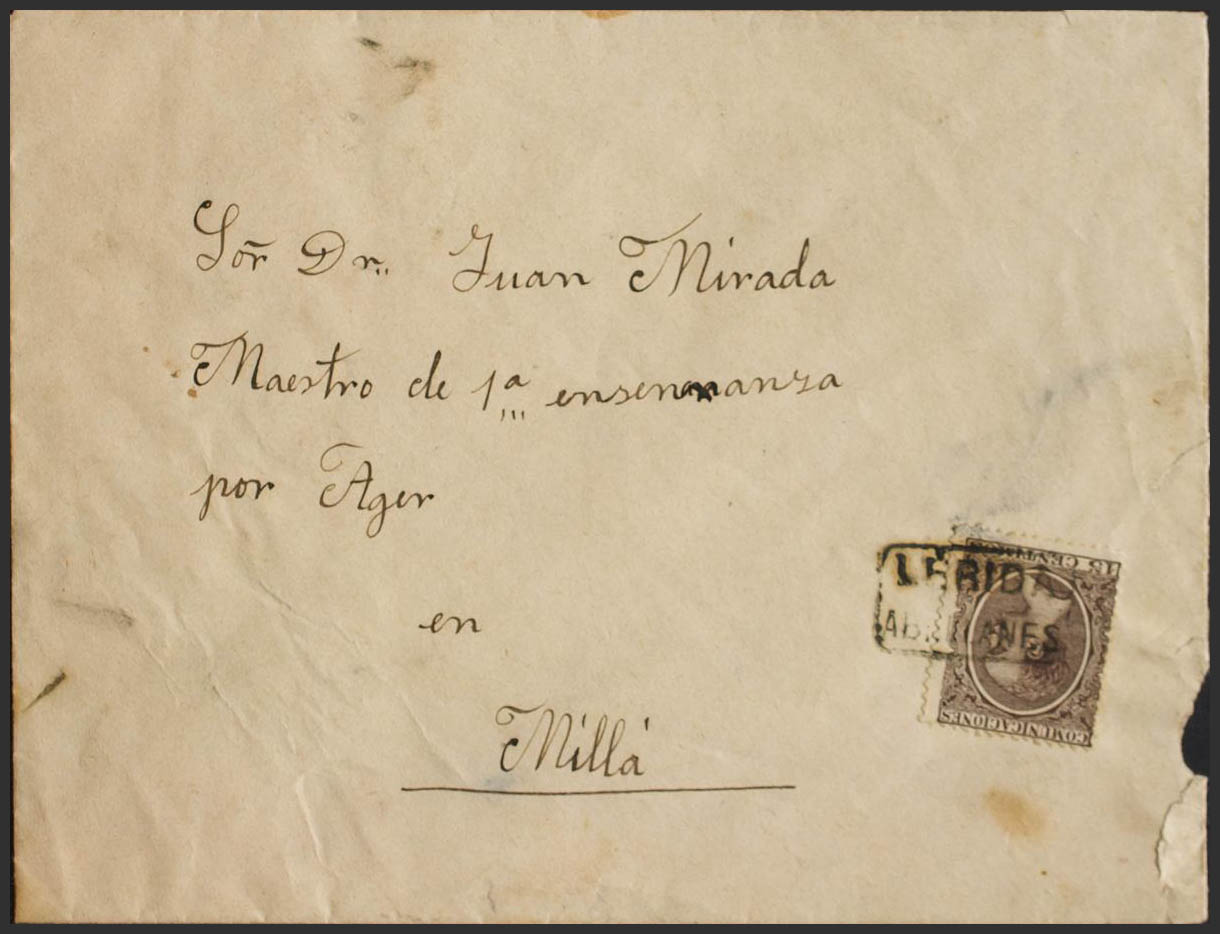 Sor̃ Dr. Juan Mirada
Maestro de 1ª ensenanza
por Ager
en
Millá
LERIDA
15 CENTIMOS
COMUNICACIONES